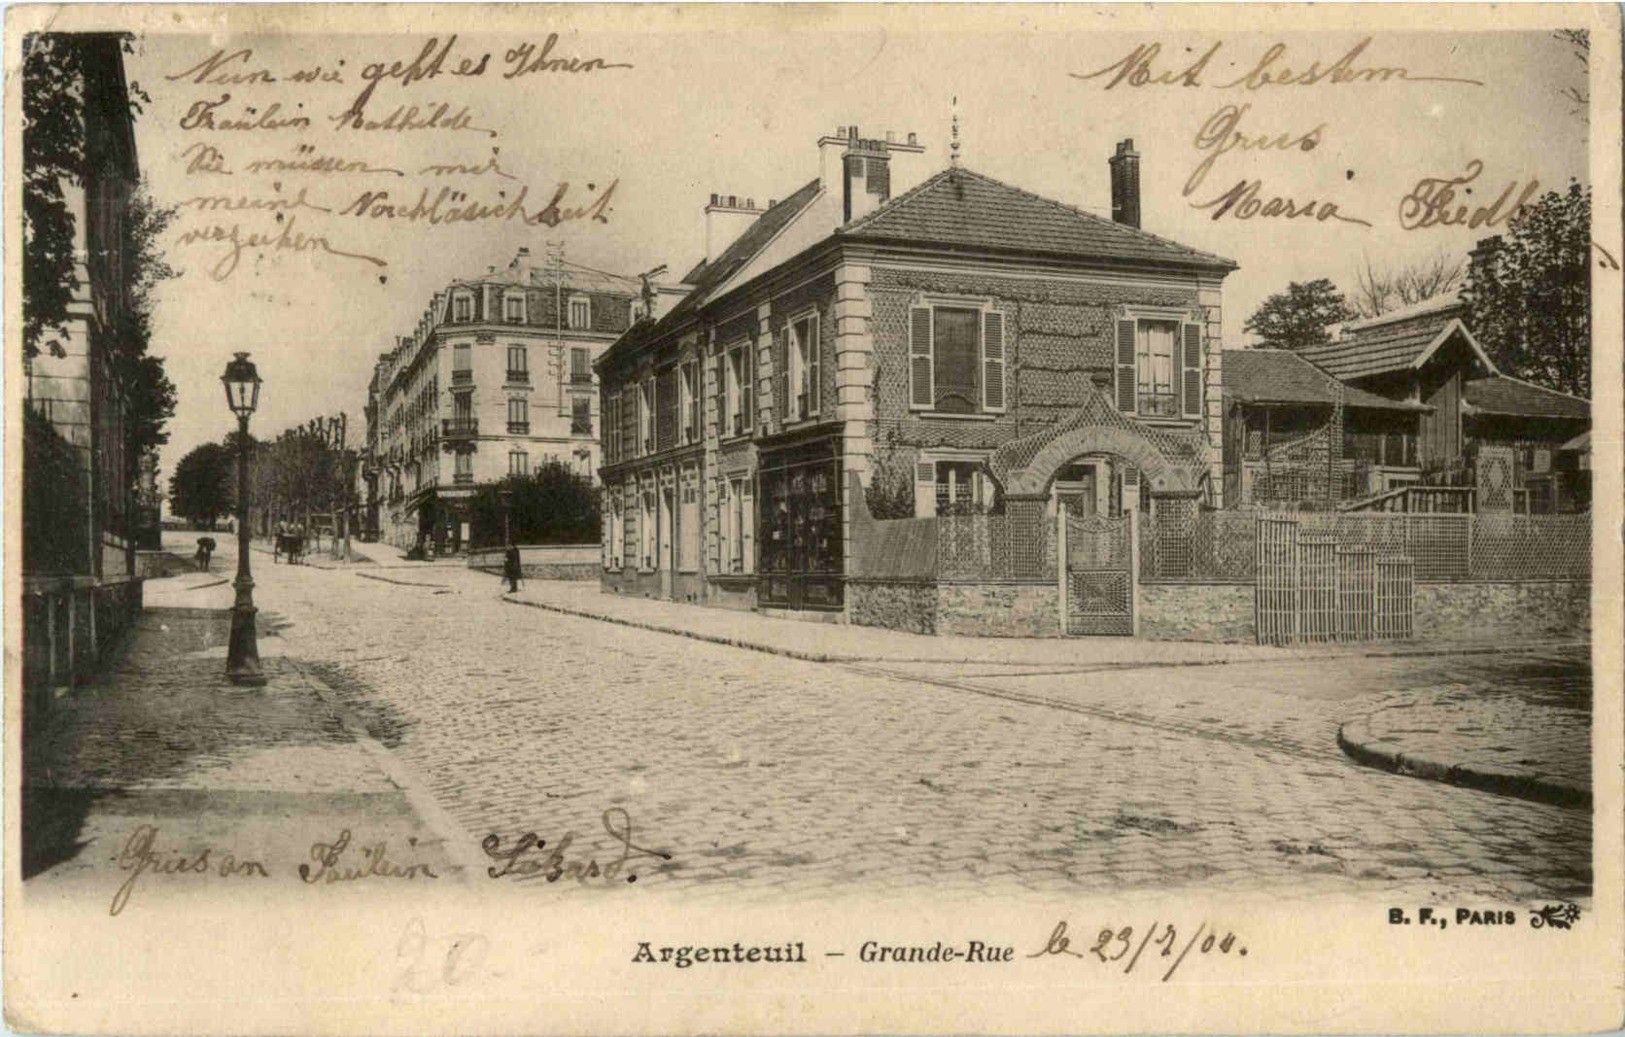 Nun wie geht es Ihnen
Fräulein Mathilde.
Sie müssen mir
meine Nachläsichkeit
verzeihen
Mit bestem
Grus
Maria
Grus an Fräulein
B. F., PARIS
Argenteuil – Grande-Rue le 23/7/04.
20